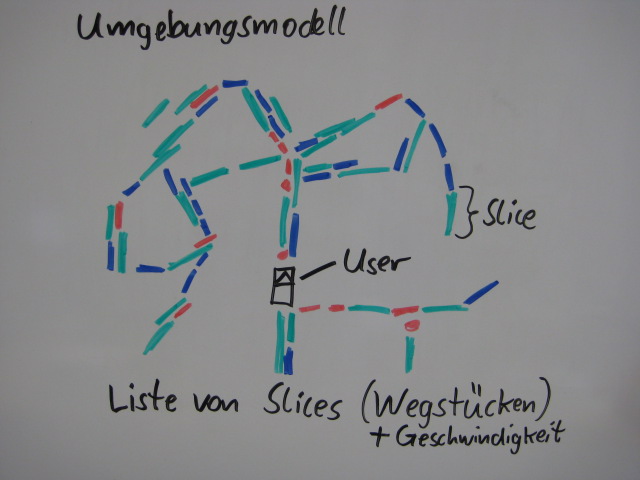 Umgebungsmodell
Slice
User
Liste von Slices (Wegstücken)
+ Geschwindigkeit